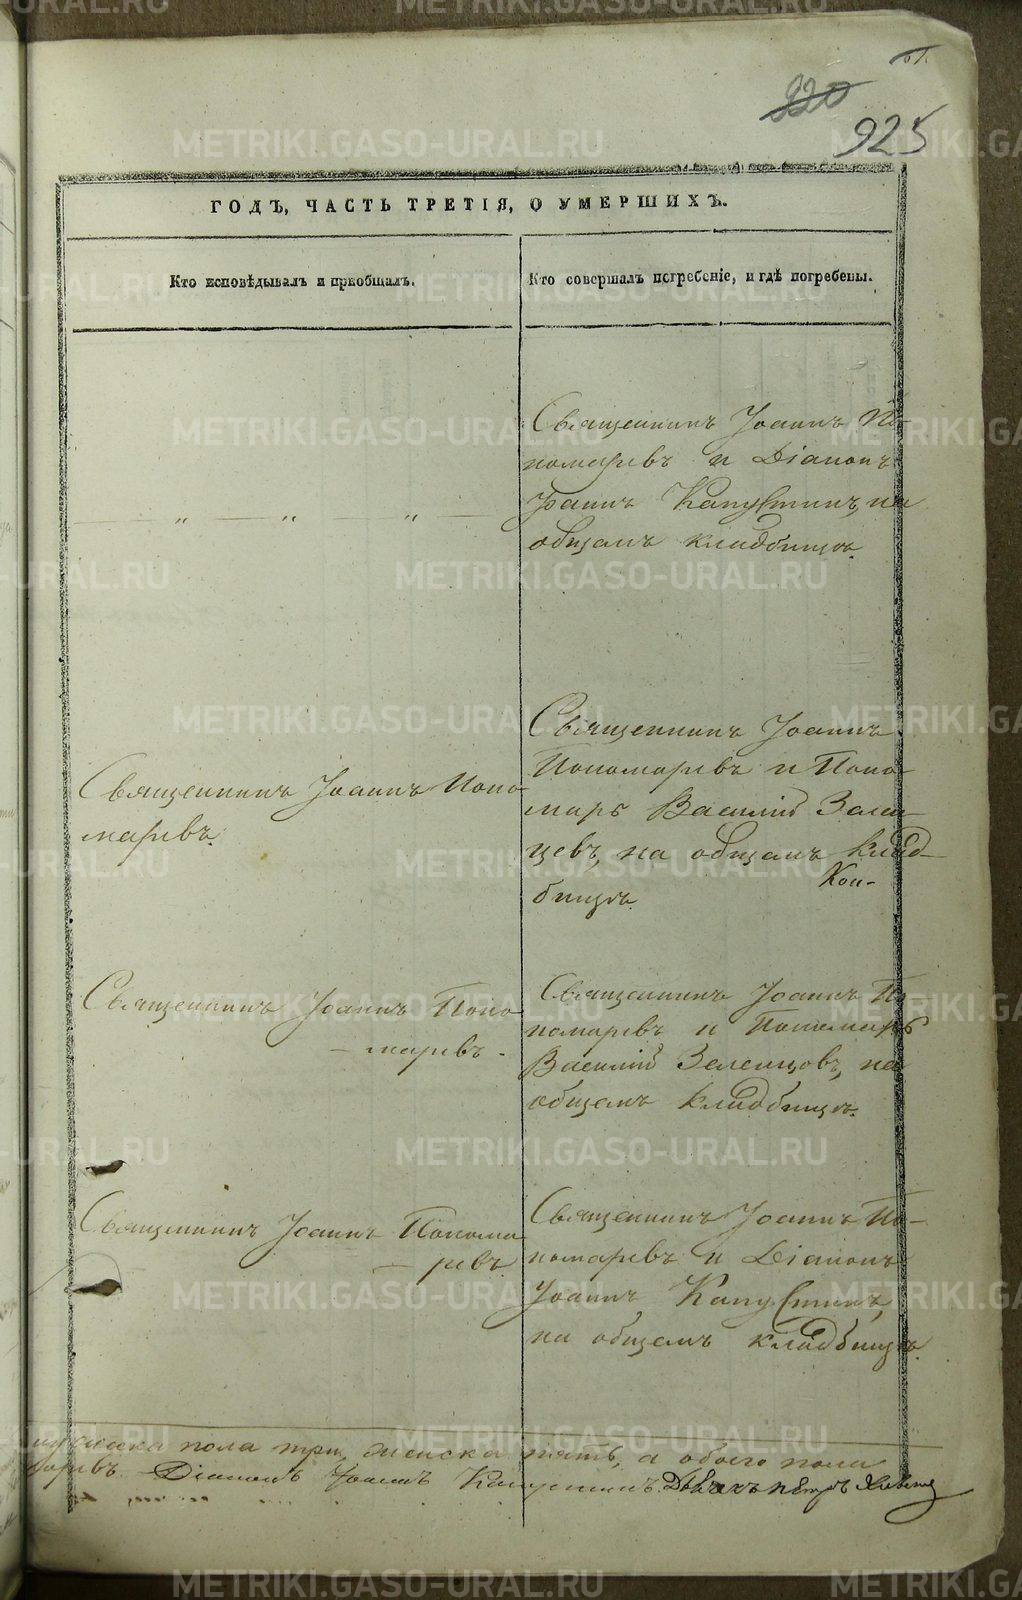 220
925
ГОДЪ, ЧАСТЬ ТРЕТІЯ, О УМЕРШИХЪ.
Кто исповѣдывалъ и пріобщалъ.
Кто совершалъ погребеніе, и гдѣ погребены.
Священникъ Іоаннъ По-
номаревъ и Діаконъ
Іоаннъ Капустинъ, на
общемъ кладбищѣ.
— „ — „ „ —
Священникъ Іоаннъ Поно-
маревъ.
Священникъ Іоаннъ
Пономаревъ и Поно-
марь Василій Зелен-
цевъ, на общемъ клад-
бищѣ.
Священникъ Іоаннъ Поно
– маревъ.
Священникъ Іоаннъ По
номаревъ и Пономарь
Василій Зеленцовъ, на
общемъ кладбищѣ.
Священникъ Іоаннъ Понома
– ревъ.
Священникъ Іоаннъ По-
номаревъ и Діаконъ
Іоаннъ Капустинъ,
на общемъ кладбищѣ.
мужеска пола три, женска пять, а обоего пола
Діаконъ Іоаннъ Капустинъ. Петръ
METRIKI.GASO-URAL.RU